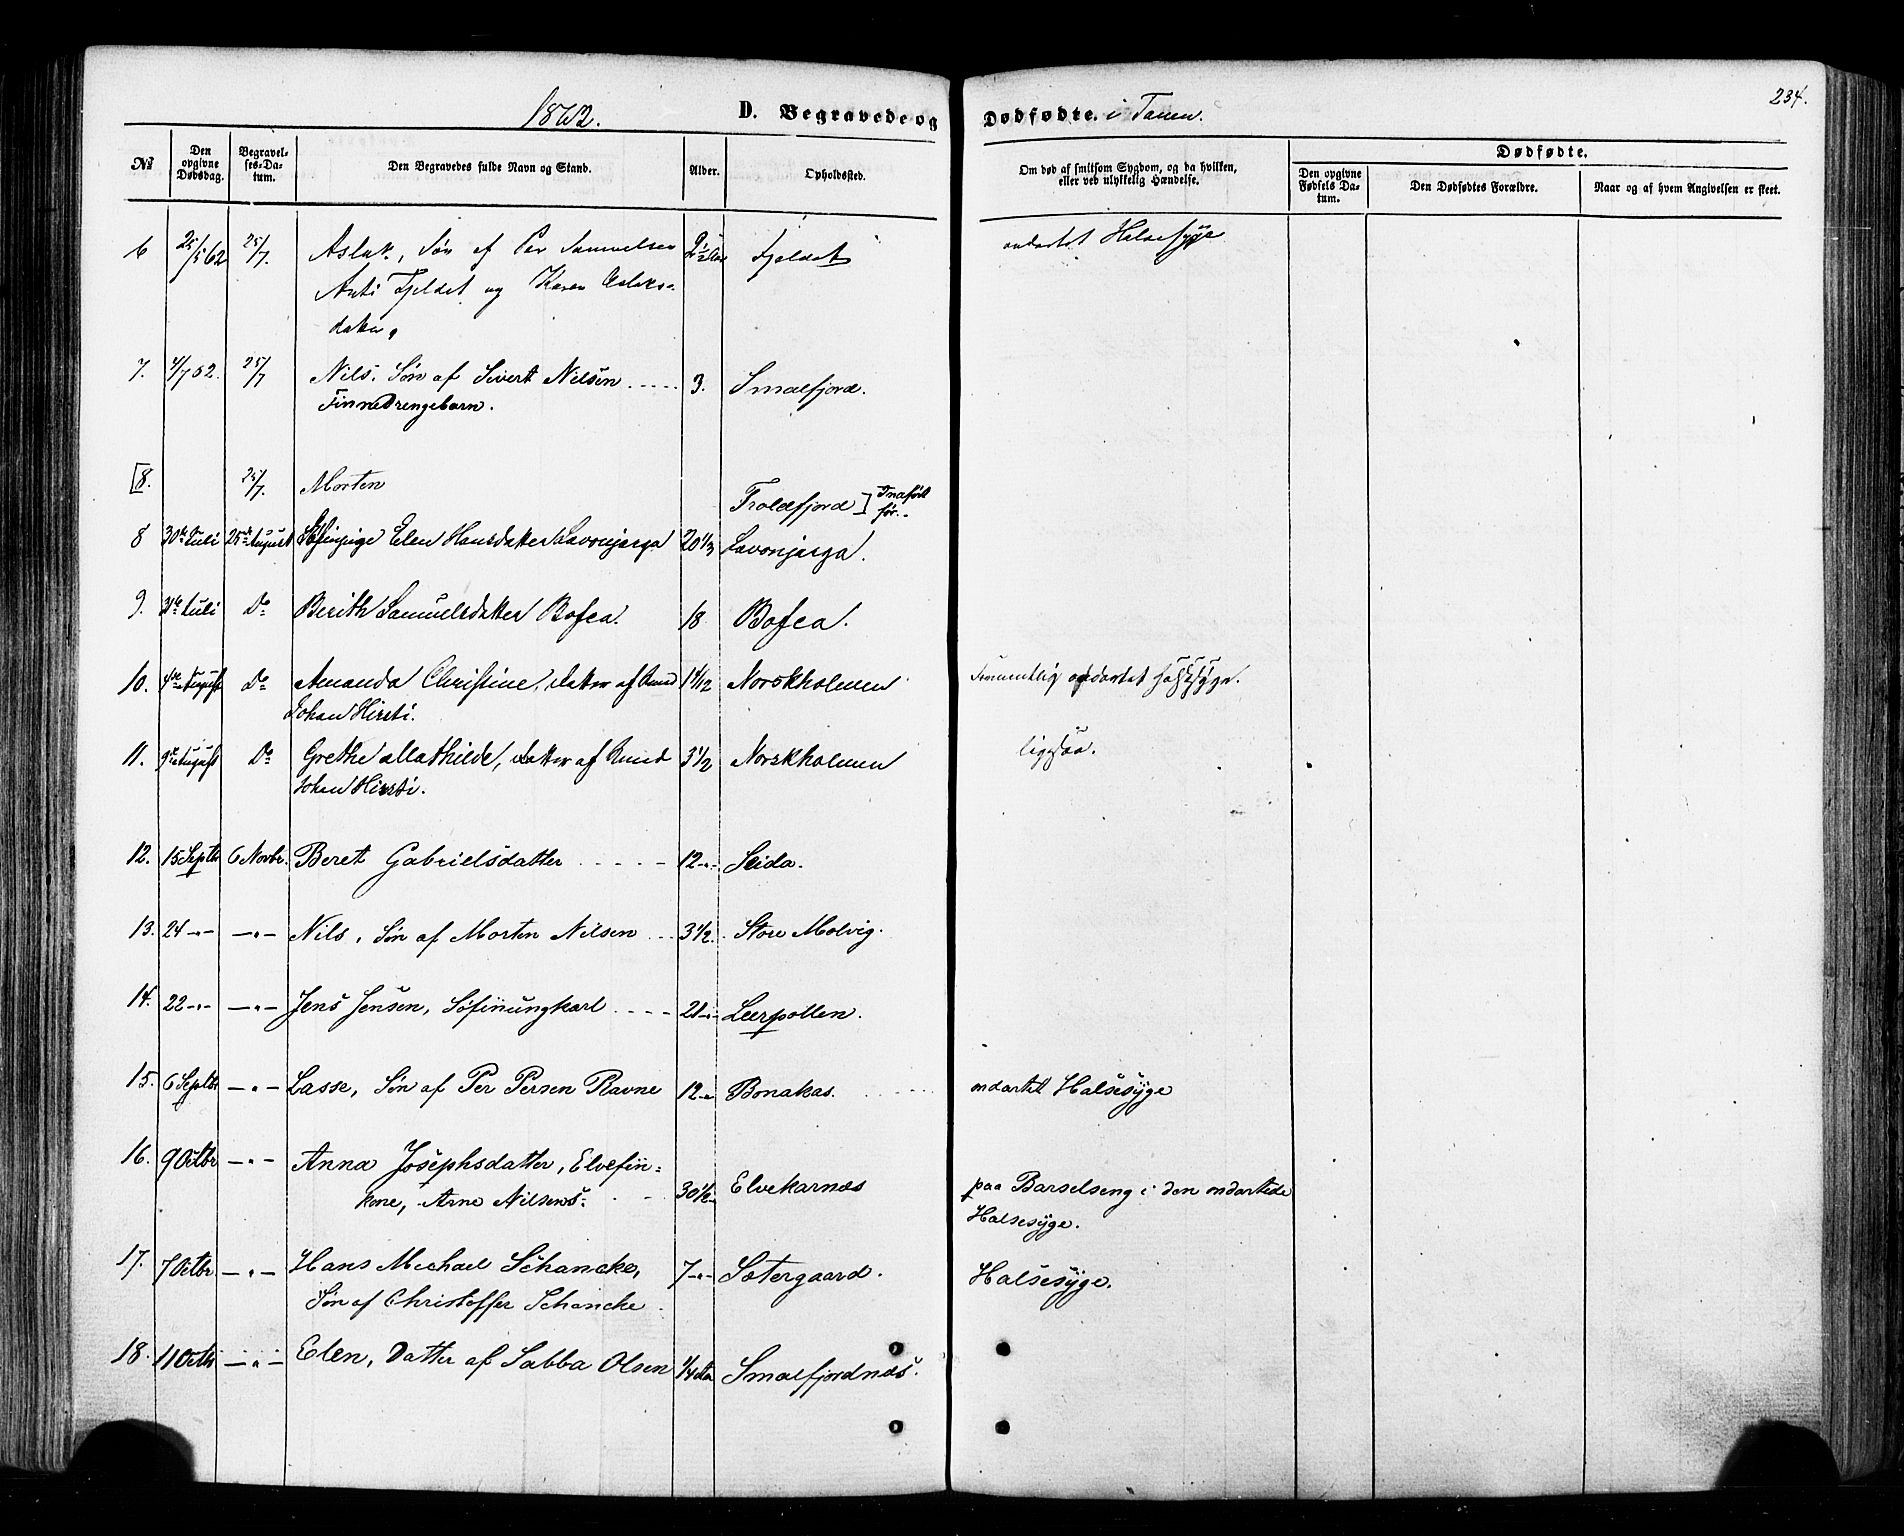 234.
1862. D. Begravede og Dødfødte. i Tanen.
Dødfødte.
№ Den opgivne Dødsdag. Begravelses-Datum. Den Begravedes fulde Navn og Stand. Alder. Opholdssted. Om død af smitsom Sygdom, og da hvilken, eller ved ulykkelig Hændelse. Den opgivne Fødsels Datum. Den Dødfødtes Forældre. Naar og af hvem Angivelsen er skeet.
6 25/5 62 25/7. Aslak, Søn af Per Samuelsen 2 1/2 Fjeldet ondartet Halssyge
Anti Fjeldet og Karen Aslaks-
datter,
7. 4/7 62. 25/7 Nils, Søn af Sivert Nilsen ..... 3. Smalfjord.
Finne Drengebarn.
[8. 25/7. Morten Troldfjord] Indført
før.
8 30te Juli 25de August Søfinpige Elen Hansdatter Lavonjarga 20 1/3 Lavonjarga.
9. 31te Juli Do Berith Samuelsdatter Bofca. 18 Bofca.
10. 4de August Do Amanda Christine, datter af Knud 1 4/12 Norskholmen ondartet Halssyge.
Johan Hirsti.
11. 9de August Do Grethe Mathilde, datter af Knud 3 1/2 Norskholmen ligesaa.
Johan Hirsti.
12. 15 Septbr 6 Novbr. Beret Gabrielsdatter ..... 12 -"- Seida.
13. 24 -"- -"- Nils, Søn af Morten Nilsen ... 3 1/2. Store Molvig.
14. 22 -"- -"- Jens Jensen, Søfinungkarl .... 21 -"- Leerpollen.
15. 6 Septbr -"- Lasse, Søn af Per Persen Ravne 12 -"- Bonakas. ondartet Halsesyge
16. 9 Octbr -"- Anna Josephsdatter, Elvefin-
kone, Arne Nilsens. 30 1/2 Elvekarnæs paa Barselseng i den ondartede
Halsesyge.
17. 7 Octbr -"- Hans Michael Schancke, 7 -"- Sætergaard. Halsesyge.
Søn af Christoffer Schancke.
18. 11 Octbr -"- Elen, Datter af Sabba Olsen 1/4 Smalfjordnæs.